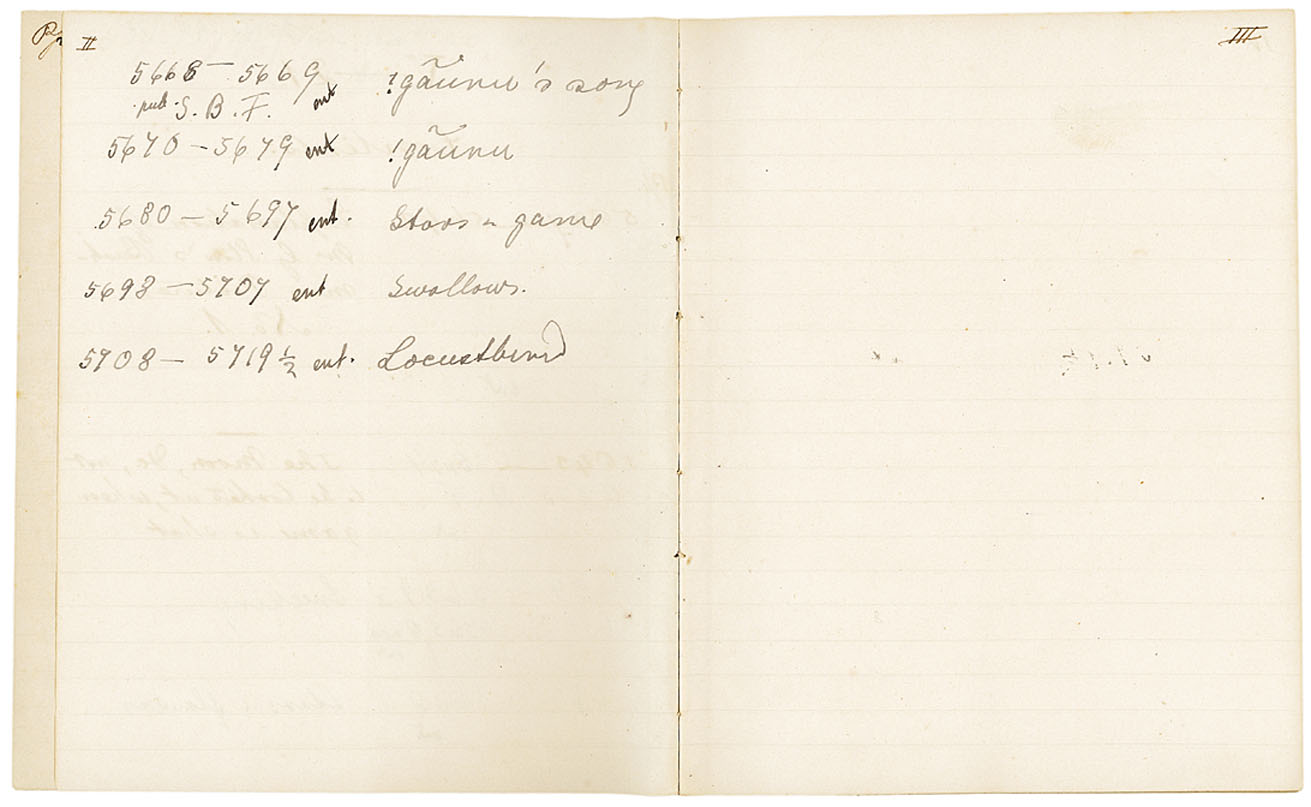 II
5668 – 5669 !gãunu's song
pub. S. B. F. ent
5670 – 5679 ent !gãunu
5680 – 5697 ent. Stars & game
5698 – 5707 ent Swallows.
5708 – 5719½ ent. Locustbird
III